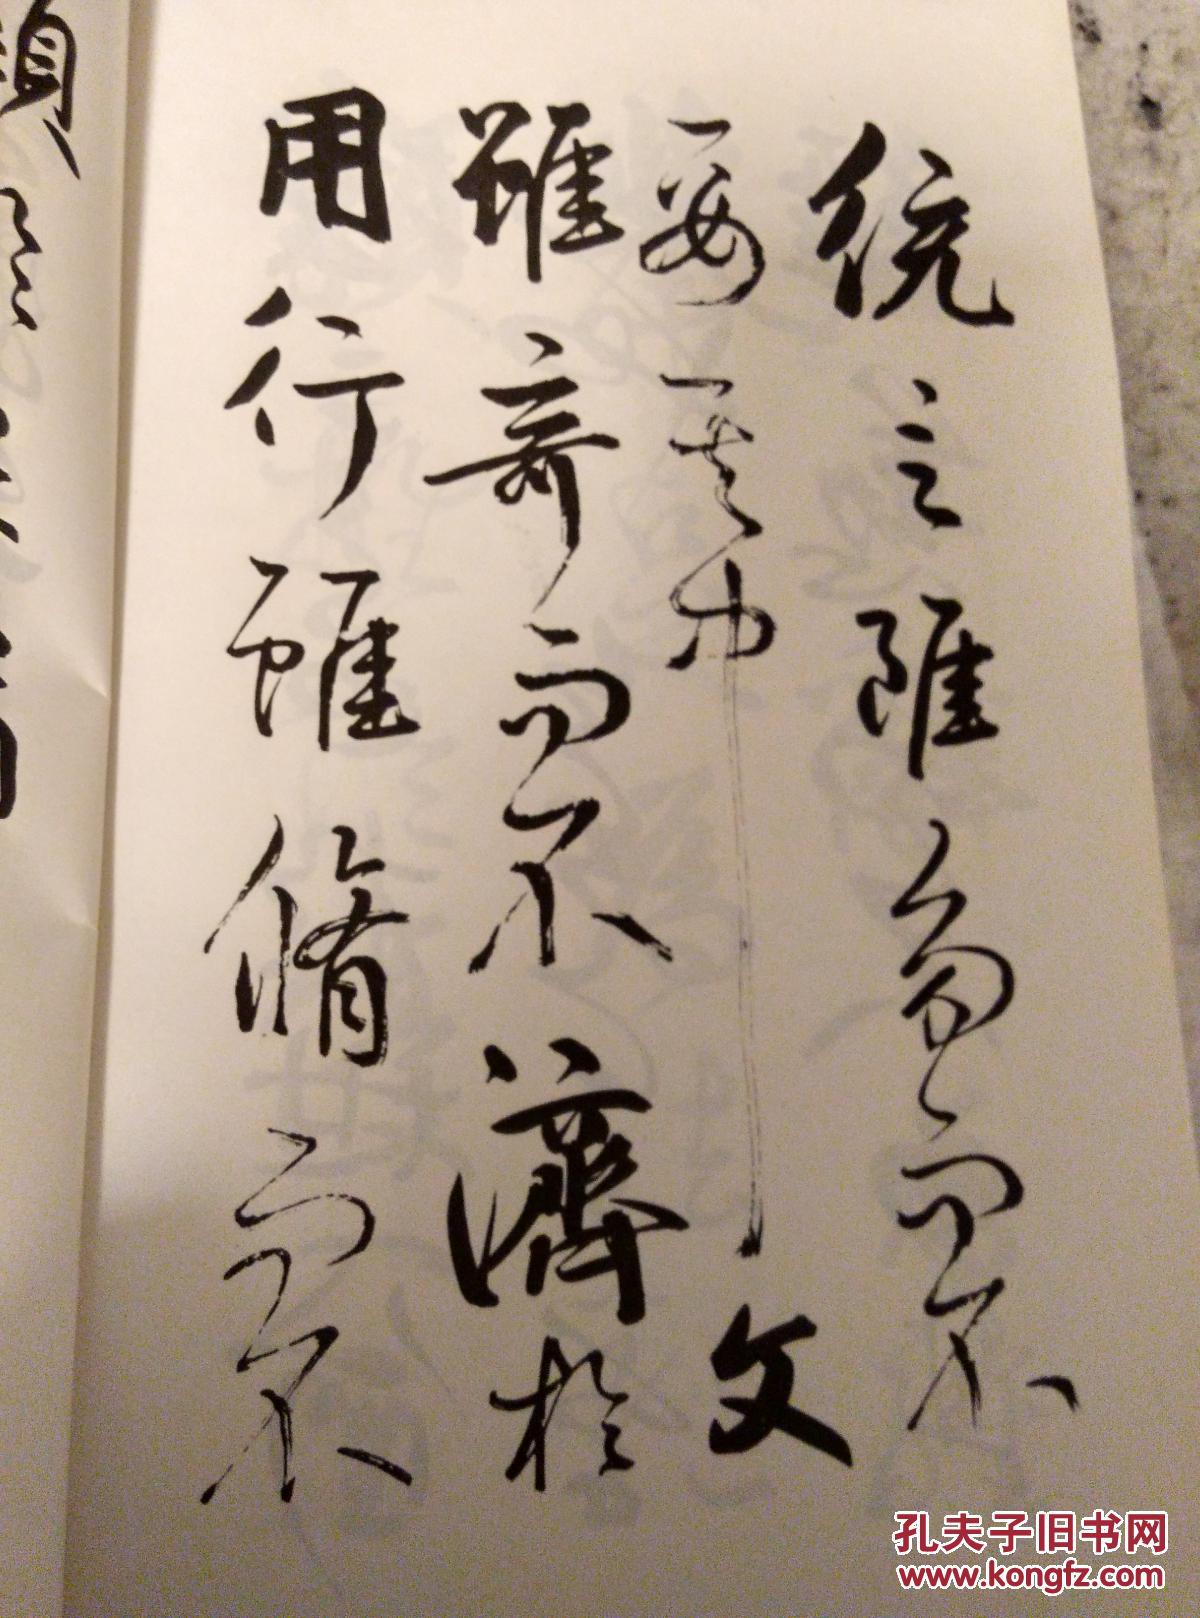 統言雖多而不
要其中文
雖奇而不濟於
用行雖脩而不
孔夫子旧书网
www.kongfz.com